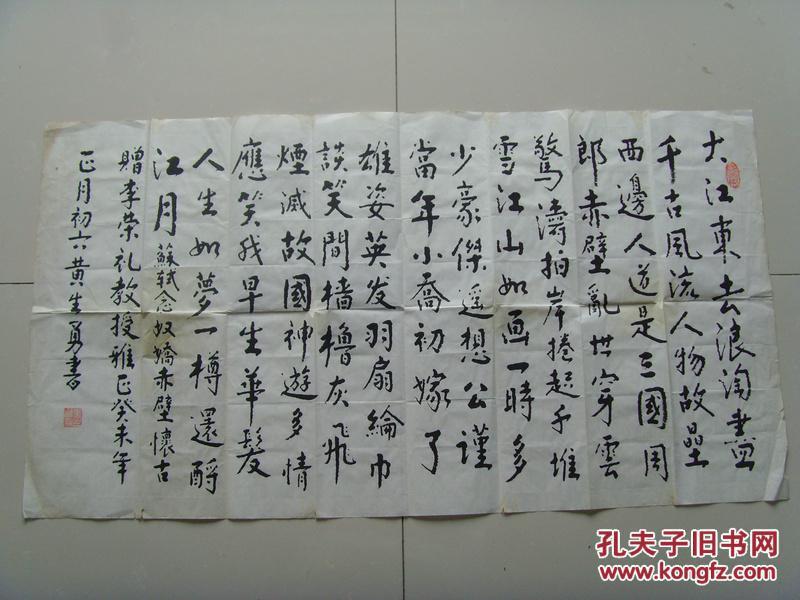 大江東去浪淘盡
千古風流人物故壘
西邊人道是三國周
郎赤壁亂世穿雲
驚濤拍岸捲起千堆
雪江山如画一時多
少豪傑遥想公谨
當年小喬初嫁了
雄姿英发羽扇綸巾
談笑間檣櫓灰飛
煙滅故國神遊多情
應笑我早生華髮
人生如夢一樽還酹
江月 蘇軾念奴嬌赤壁懷古
贈李荣礼教授雅正癸未年
正月初六黄生勇書
孔子旧书网
www.kongfz.com